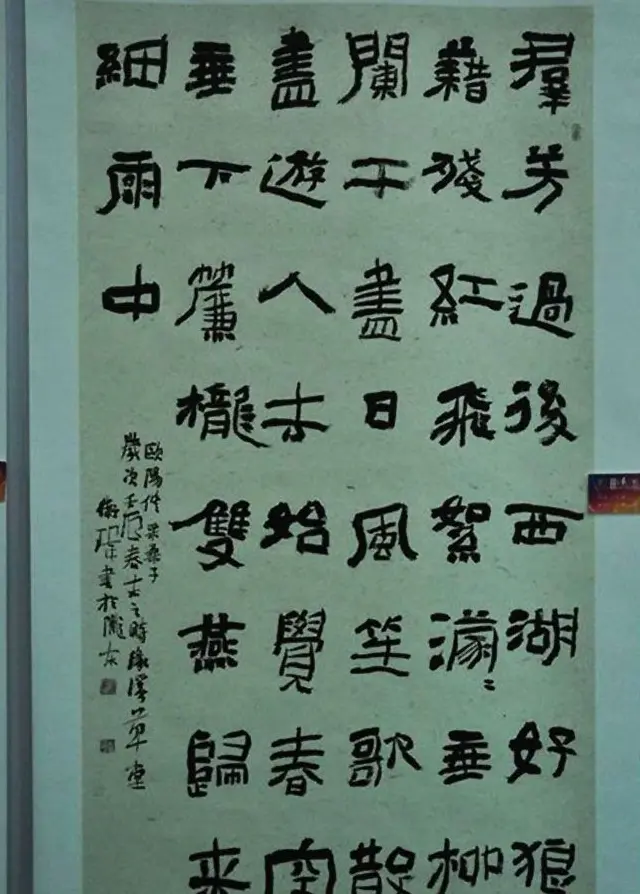 羣芳過後西湖好狼
藉殘紅飛絮濛〻垂柳
闌干盡日風笙歌散
盡遊人去始覺春空
垂下簾櫳雙燕歸来
細雨中
歐陽修采桑子
歲次壬辰春去之時緣溪草堂
書於隴东